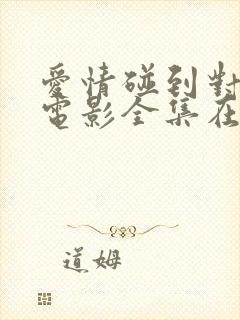 愛情碰到對
電影全集在
道姆